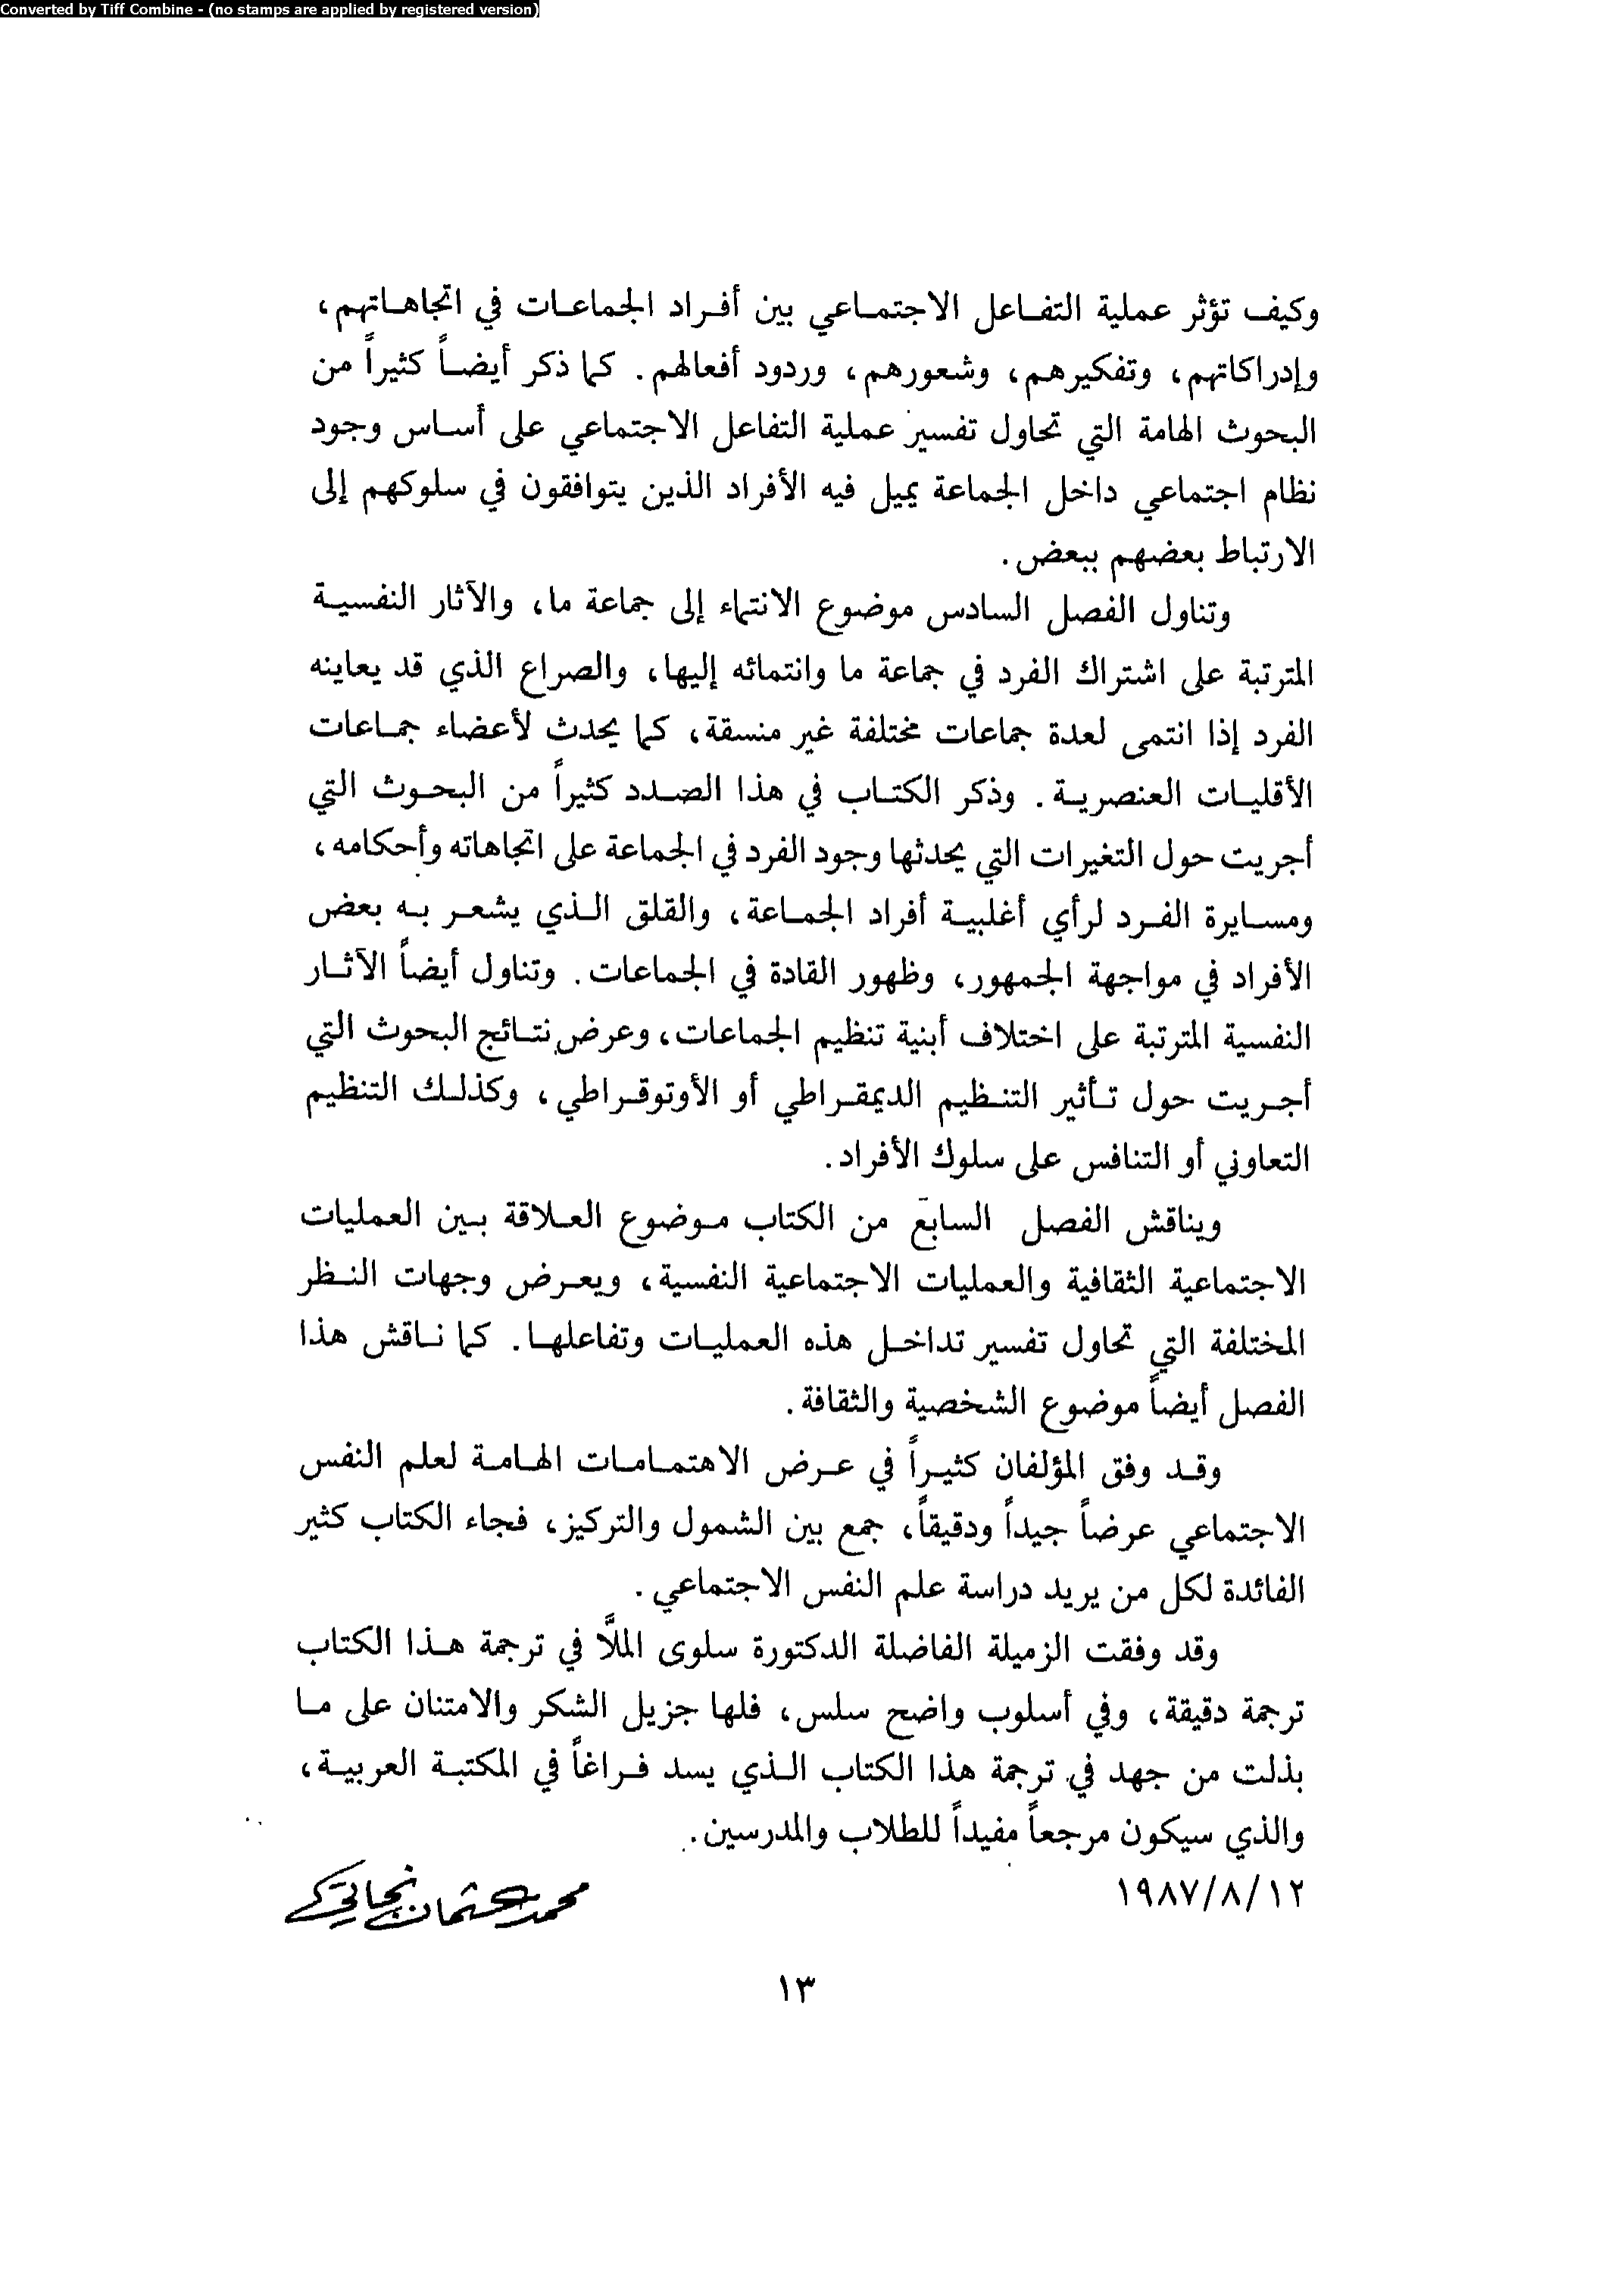 Converted by Tiff Combine - (no stamps are applied by registered version)
وكيف تؤثر عملية التفاعل الاجتماعي بين أفراد الجماعات في اتجاهاتهم،
وإدراكاتهم، وتفكيرهم، وشعورهم، وردود أفعالهم. كما ذكر أيضاً كثيراً من
البحوث الهامة التي تحاول تفسير عملية التفاعل الاجتماعي على أساس وجود
نظام اجتماعي داخل الجماعة يميل فيه الأفراد الذين يتوافقون في سلوكهم إلى
الارتباط بعضهم ببعض.
وتناول الفصل السادس موضوع الانتماء إلى جماعة ما، والآثار النفسية
المترتبة على اشتراك الفرد في جماعة ما وانتمائه إليها، والصراع الذي قد يعاينه
الفرد إذا انتمى لعدة جماعات مختلفة غير منسقة، كما يحدث لأعضاء جماعات
الأقليات العنصرية. وذكر الكتاب في هذا الصدد كثيراً من البحوث التي
أجريت حول التغيرات التي يحدثها وجود الفرد في الجماعة على اتجاهاته وأحكامه،
ومسايرة الفرد لرأي أغلبية أفراد الجماعة، والقلق الذي يشعر به بعض
الأفراد في مواجهة الجمهور، وظهور القادة في الجماعات. وتناول أيضاً الآثار
النفسية المترتبة على اختلاف أبنية تنظيم الجماعات، وعرض نتائج البحوث التي
أجريت حول تأثير التنظيم الديمقراطي أو الأوتوقراطي، وكذلك التنظيم
التعاوني أو التنافس على سلوك الأفراد.
ويناقش الفصل السابع من الكتاب موضوع العلاقة بين العمليات
الاجتماعية الثقافية والعمليات الاجتماعية النفسية، ويعرض وجهات النظر
المختلفة التي تحاول تفسير تداخل هذه العمليات وتفاعلها. كما ناقش هذا
الفصل أيضاً موضوع الشخصية والثقافة.
وقد وفق المؤلفان كثيراً في عرض الاهتمامات الهامة لعلم النفس
الاجتماعي عرضاً جيداً ودقيقاً، جمع بين الشمول والتركيز، فجاء الكتاب كثير
الفائدة لكل من يريد دراسة علم النفس الاجتماعي.
وقد وفقت الزميلة الفاضلة الدكتورة سلوى الملَّا في ترجمة هذا الكتاب
ترجمة دقيقة، وفي أسلوب واضح سلس، فلها جزيل الشكر والامتنان على ما
بذلت من جهد في ترجمة هذا الكتاب الذي يسد فراغاً في المكتبة العربية،
والذي سيكون مرجعاً مفيداً للطلاب والمدرسين.
١٩٨٧/٨/١٢
محمد عثمان نجاتي
١٣